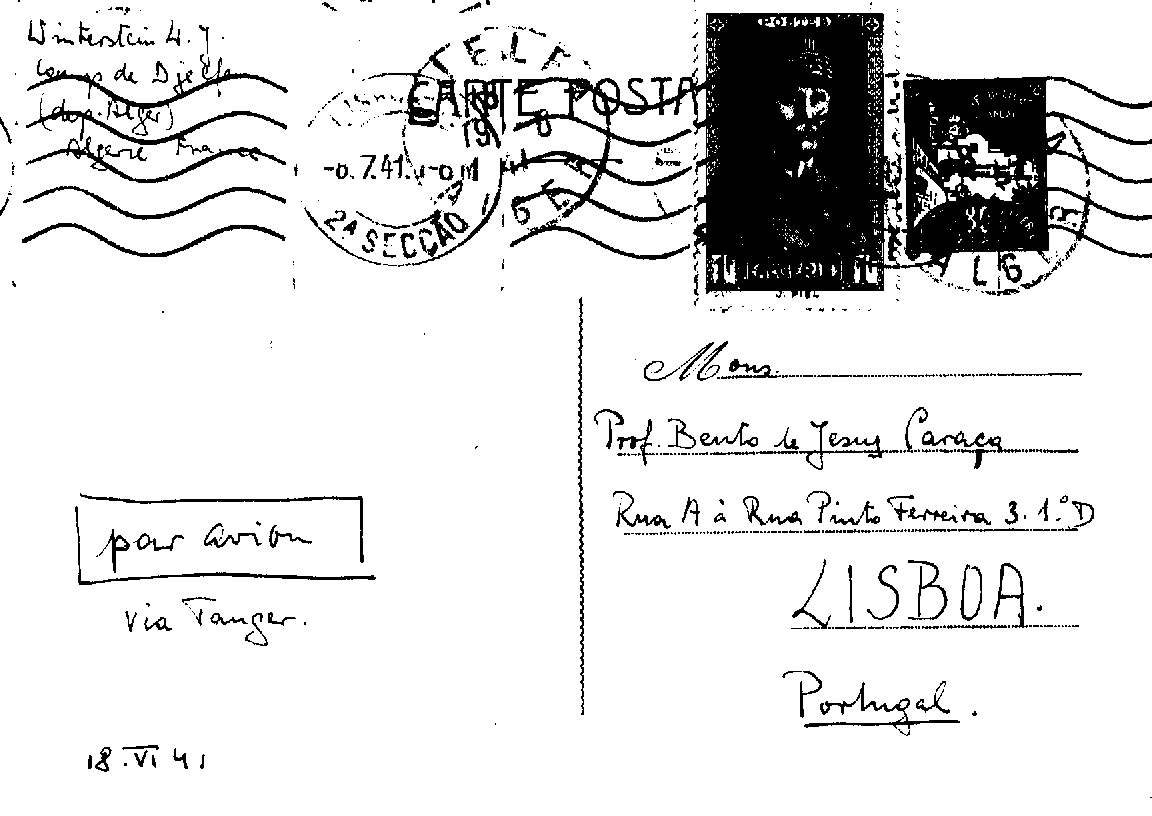 Winterstein W. J.
Camp de Djelfa
(dep. Alger)
Algerie France
CARTE POSTA
-0.7.41.
2A SECÇÃO
POSTES
ALGERIE
Mons.
Prof. Bento de Jesus Caraça
Rua A à Rua Pinto Ferreira 3. 1.º D
LISBOA.
Portugal.
par avion
via Tanger.
18.VI 41